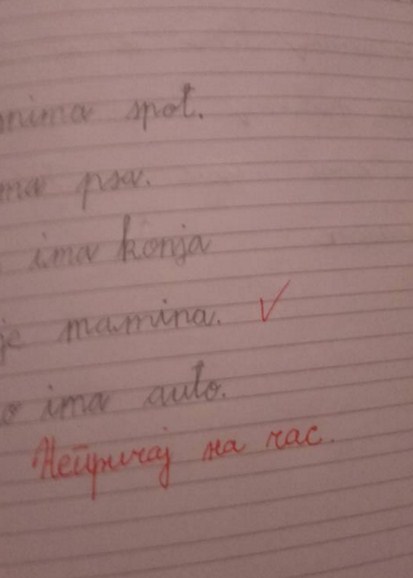 nima spot.
ma psa.
ima konja
je mamina. ✓
o ima auto.
Непричај на час.